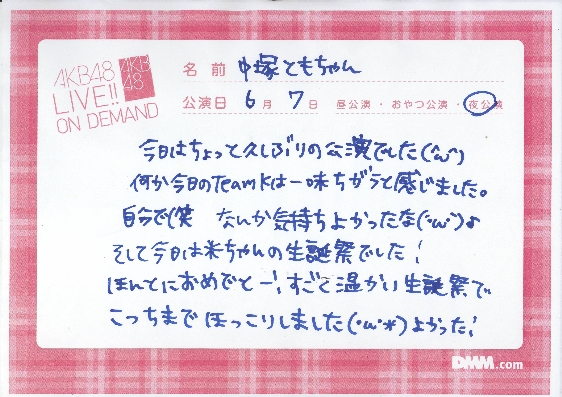 AKB48
LIVE!!
ON DEMAND
AKB
48
名前 中塚ともちゃん
公演日 6月7日 昼公演・おやつ公演・夜公演
今日はちょっと久しぶりの公演でした(^ω^)
何か今日のTeamKは一味ちがうと感じました。
自分で(笑 なんか気持ちよかったな(・ω・)♪
そして今日は米ちゃんの生誕祭でした!
ほんとにおめでとー!すごく温かい生誕祭で
こっちまでほっこりしました(・ω・*)よかった!
DMM.com